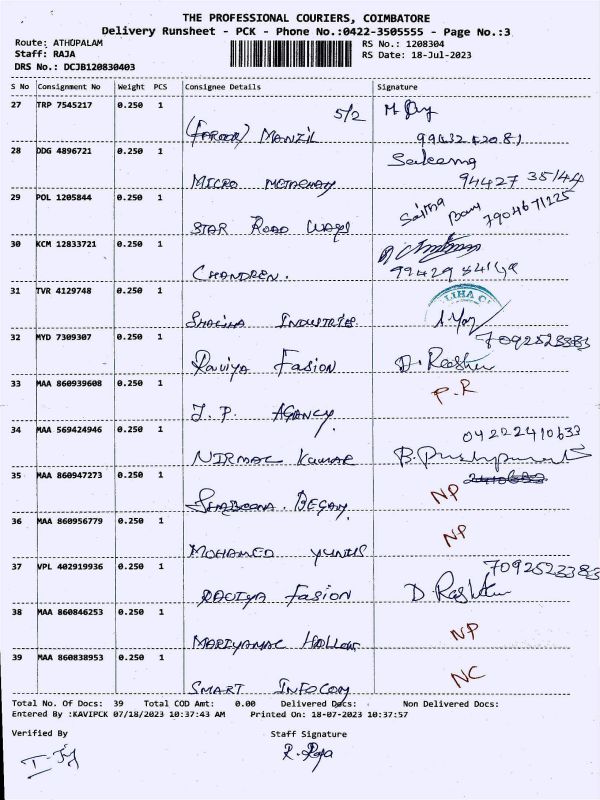 THE PROFESSIONAL COURIERS, COIMBATORE
Delivery Runsheet - PCK - Phone No.:0422-3505555 - Page No.:3
Route: ATHUPALAM
RS No.: 1208304
Staff: RAJA
RS Date: 18-Jul-2023
DRS No.: DCJB120830403
S No Consignment No Weight PCS Consignee Details Signature
27 TRP 7545217 0.250 1 5/2
MANZIL
28 DDG 4896721 0.250 1 Sakeena
MICRO 94427 35144
29 POL 1205844 0.250 1 7904671225
STAR ROAD WAYS
30 KCM 12833721 0.250 1
CHANDREN.
31 TVR 4129748 0.250 1 LIHA C
INDUSTRIES
32 MYD 7309307 0.250 1 7092523383
Raviya Fasion
33 MAA 860939608 0.250 1 P.R
J.P. AGANCY.
34 MAA 569424946 0.250 1 04222410633
NIRMAL KUMAR
35 MAA 860947273 0.250 1 NP
BEGAM.
36 MAA 860956779 0.250 1 NP
MOHAMED YUNUS
37 VPL 402919936 0.250 1 7092523383
RAVIYA Fasion
38 MAA 860846253 0.250 1 NP
39 MAA 860838953 0.250 1 NC
SMART INFOCOM
Total No. Of Docs: 39 Total COD Amt: 0.00 Delivered Docs: Non Delivered Docs:
Entered By :KAVIPCK 07/18/2023 10:37:43 AM Printed On: 18-07-2023 10:37:57
Verified By Staff Signature
R. Raja